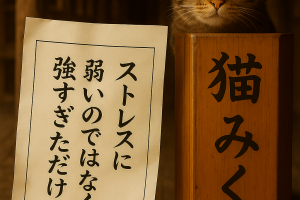 ストレスに
弱いのではなく
強すぎただけ
猫みく